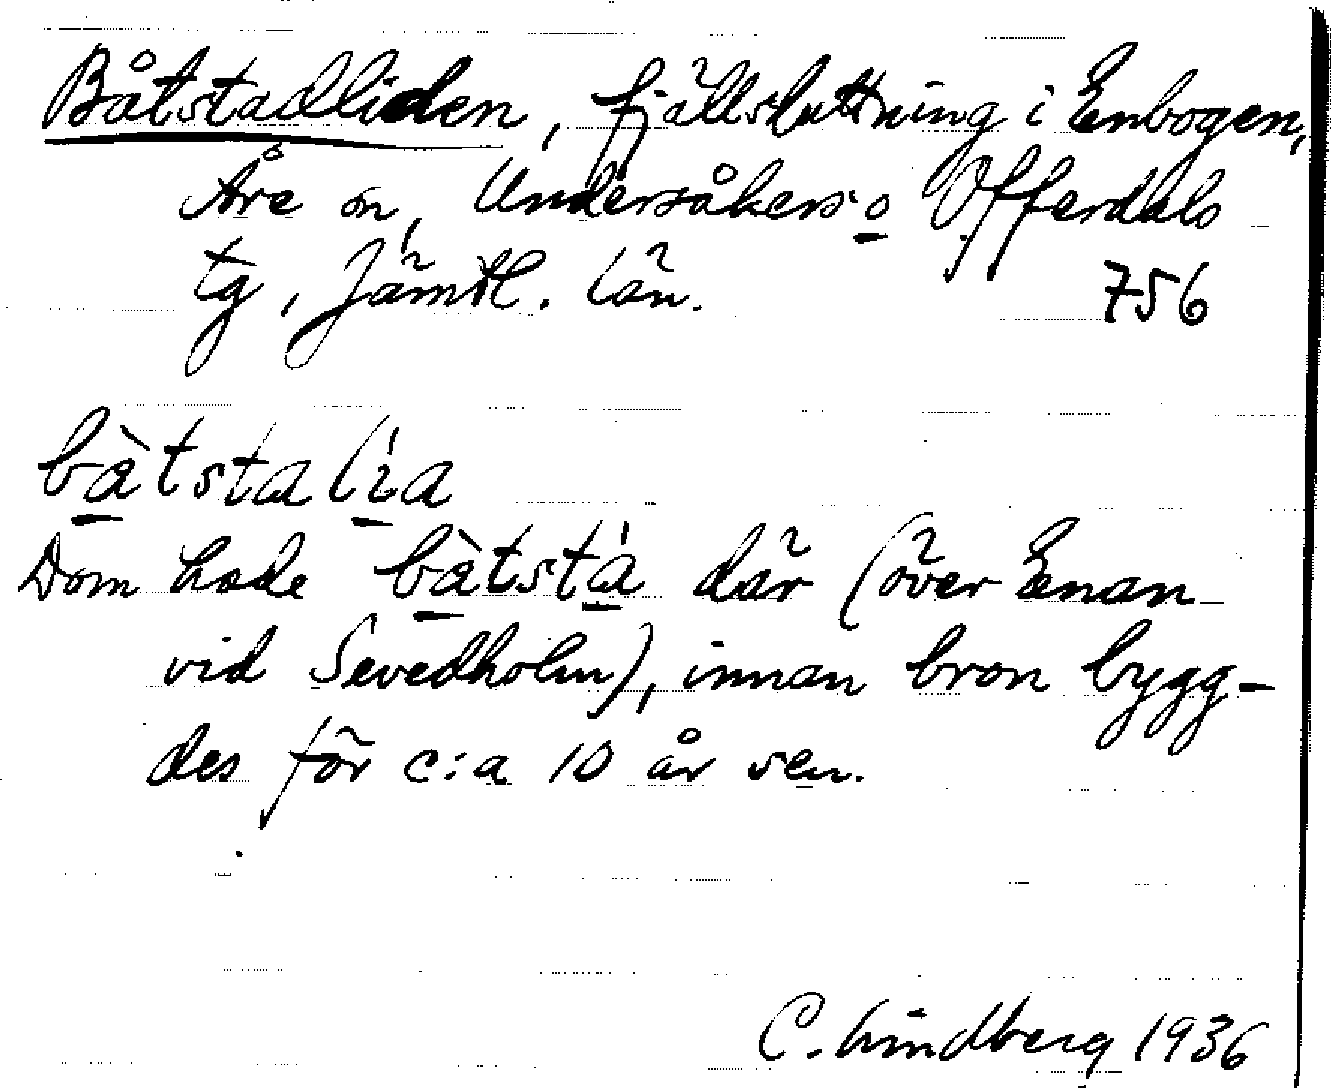 Båtstadliden, fjällsluttning i Enbogen,
Åre sn, Undersåkers o Offerdals
tg, Jämtl. län. 756
bàtstalìa
Dom hade bàtstá där (över Enan
vid Sevedholm), innan bron bygg-
des för c:a 10 år sen.
C. Lindberg 1936